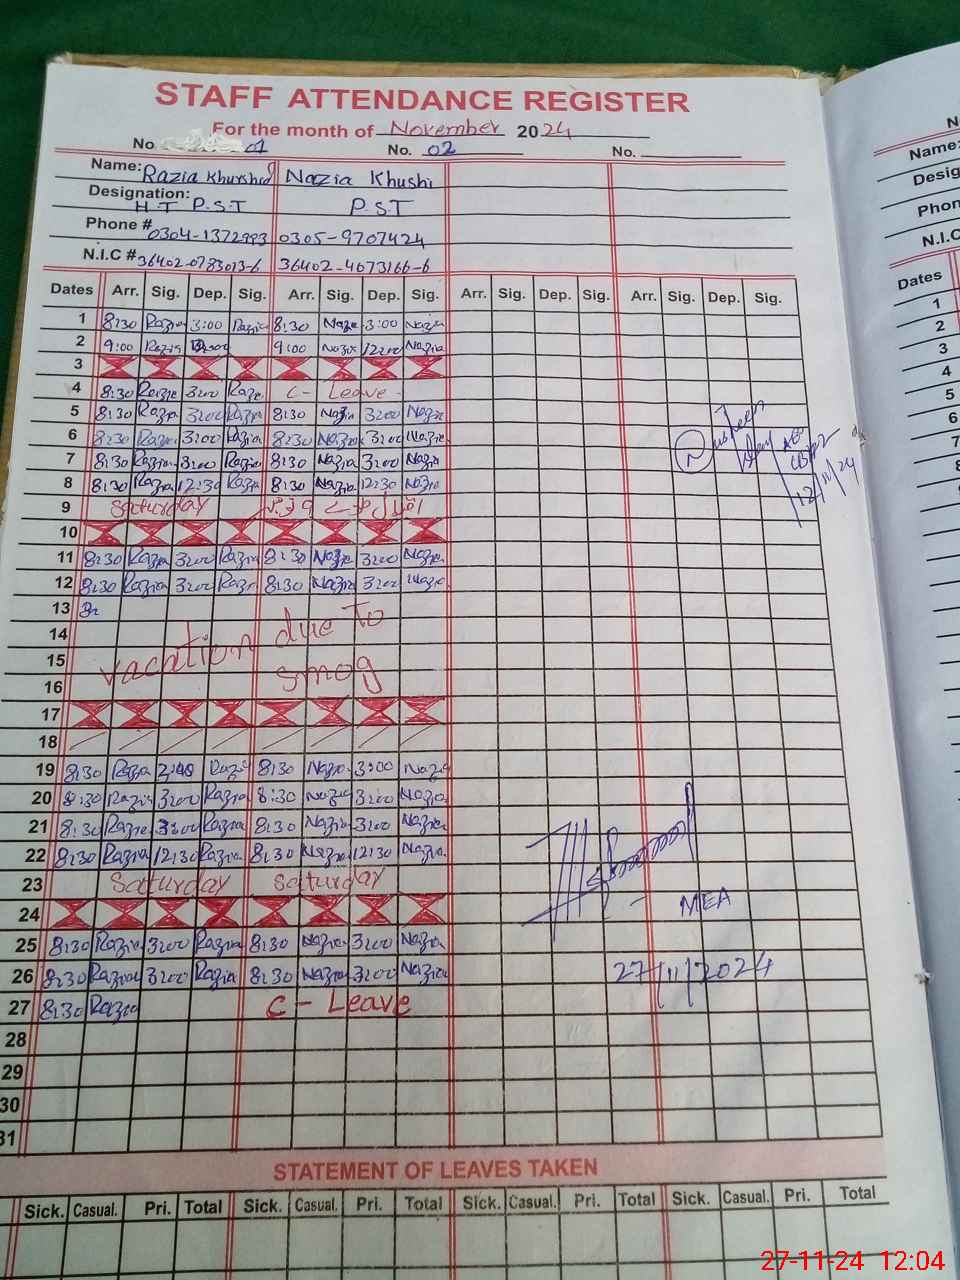 STAFF ATTENDANCE REGISTER
For the month of November 2024
No 01 No. 02 No.
Name: Razia Khurshid Nazia Khushi
Designation: H.T P.S.T P.S.T
Phone # 0304-1372993 0305-9707424
N.I.C # 36402-0783013-6 36402-4673166-6
Dates Arr. Sig. Dep. Sig. Arr. Sig. Dep. Sig. Arr. Sig. Dep. Sig. Arr. Sig. Dep. Sig.
1 8:30 Razia 3:00 Razia 8:30 Nazia 3:00 Nazia
2 9:00 Razia 9:00 Nazia 12:00 Nazia
3
4 8:30 Razia 3:00 Razia C- Leave
5 8:30 Razia 3:00 Razia 8:30 Nazia 3:00 Nazia
6 8:30 Razia 3:00 Razia 8:30 Nazia 3:00 Nazia
7 8:30 Razia 3:00 Razia 8:30 Nazia 3:00 Nazia
8 8:30 Razia 12:30 Razia 8:30 Nazia 12:30 Nazia
9 Saturday
12/11/24
10
11 8:30 Razia 3:00 Razia 8:30 Nazia 3:00 Nazia
12 8:30 Razia 3:00 Razia 8:30 Nazia 3:00 Nazia
13
14 vacation due to
15
16 smog
17
18
19 8:30 Razia Razia 8:30 Nazia 3:00 Nazia
20 8:30 Razia 3:00 Razia 8:30 Nazia 3:00 Nazia
21 8:30 Razia 3:00 Razia 8:30 Nazia 3:00 Nazia
22 8:30 Razia 12:30 Razia 8:30 Nazia 12:30 Nazia
23 Saturday Saturday
24 MEA
25 8:30 Razia 3:00 Razia 8:30 Nazia 3:00 Nazia
26 8:30 Razia 3:00 Razia 8:30 Nazia 3:00 Nazia 27/11/2024
27 8:30 Razia C- Leave
28
29
30
31
STATEMENT OF LEAVES TAKEN
Sick. Casual. Pri. Total Sick. Casual. Pri. Total Sick. Casual. Pri. Total Sick. Casual. Pri. Total
No
Name:
Desig
Phon
N.I.C
Dates
1
2
3
4
5
6
7
27-11-24 12:04